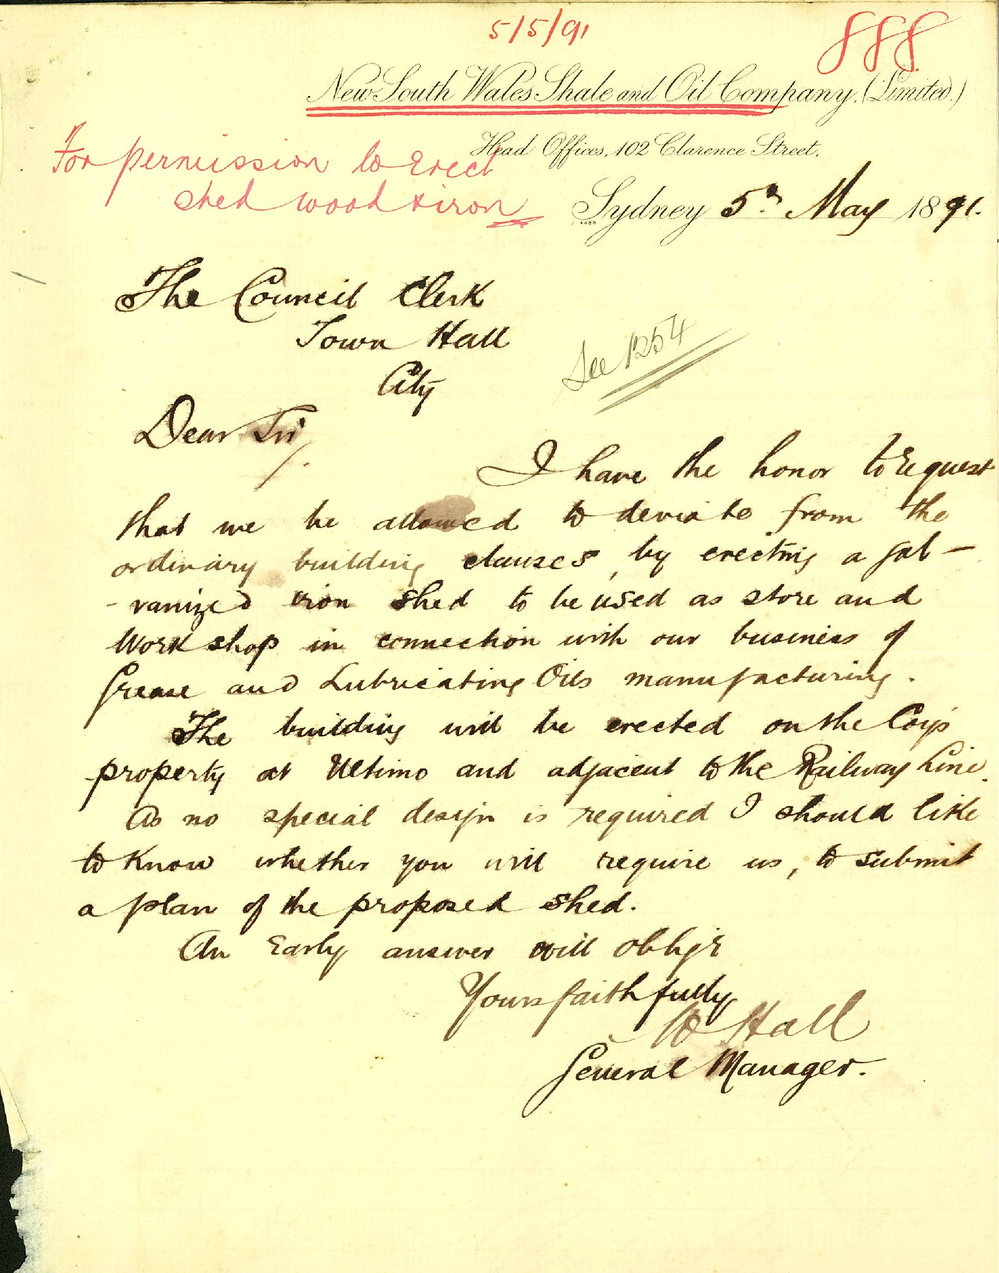 5/5/91
888
New South Wales Shale and Oil Company. (Limited.)
Head Offices, 102 Clarence Street.
For permission to Erect
shed wood & iron
Sydney 5th May 1891.
The Council Clerk
Town Hall
City
See 1254
Dear Sir,
I have the honor to request
that we be allowed to deviate from the
ordinary building clauses, by erecting a gal-
-vanized iron shed to be used as store and
Work shop in connection with our business of
Grease and Lubricating Oils manufacturing.
The building will be erected on the Coy's
property at Ultimo and adjacent to the Railway Line.
As no special design is required I should like
to know whether you will require us, to submit
a plan of the proposed shed.
An Early answer will oblige
Yours faithfully
W Hall
General Manager.